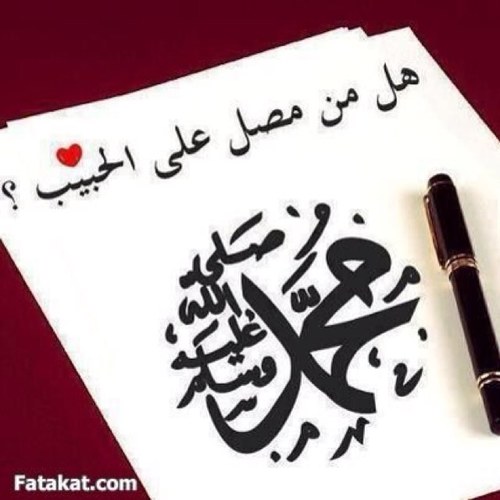 هل من مصل على الحبيب ؟
محمد
صلى
الله
عليه
وسلم
Fatakat.com